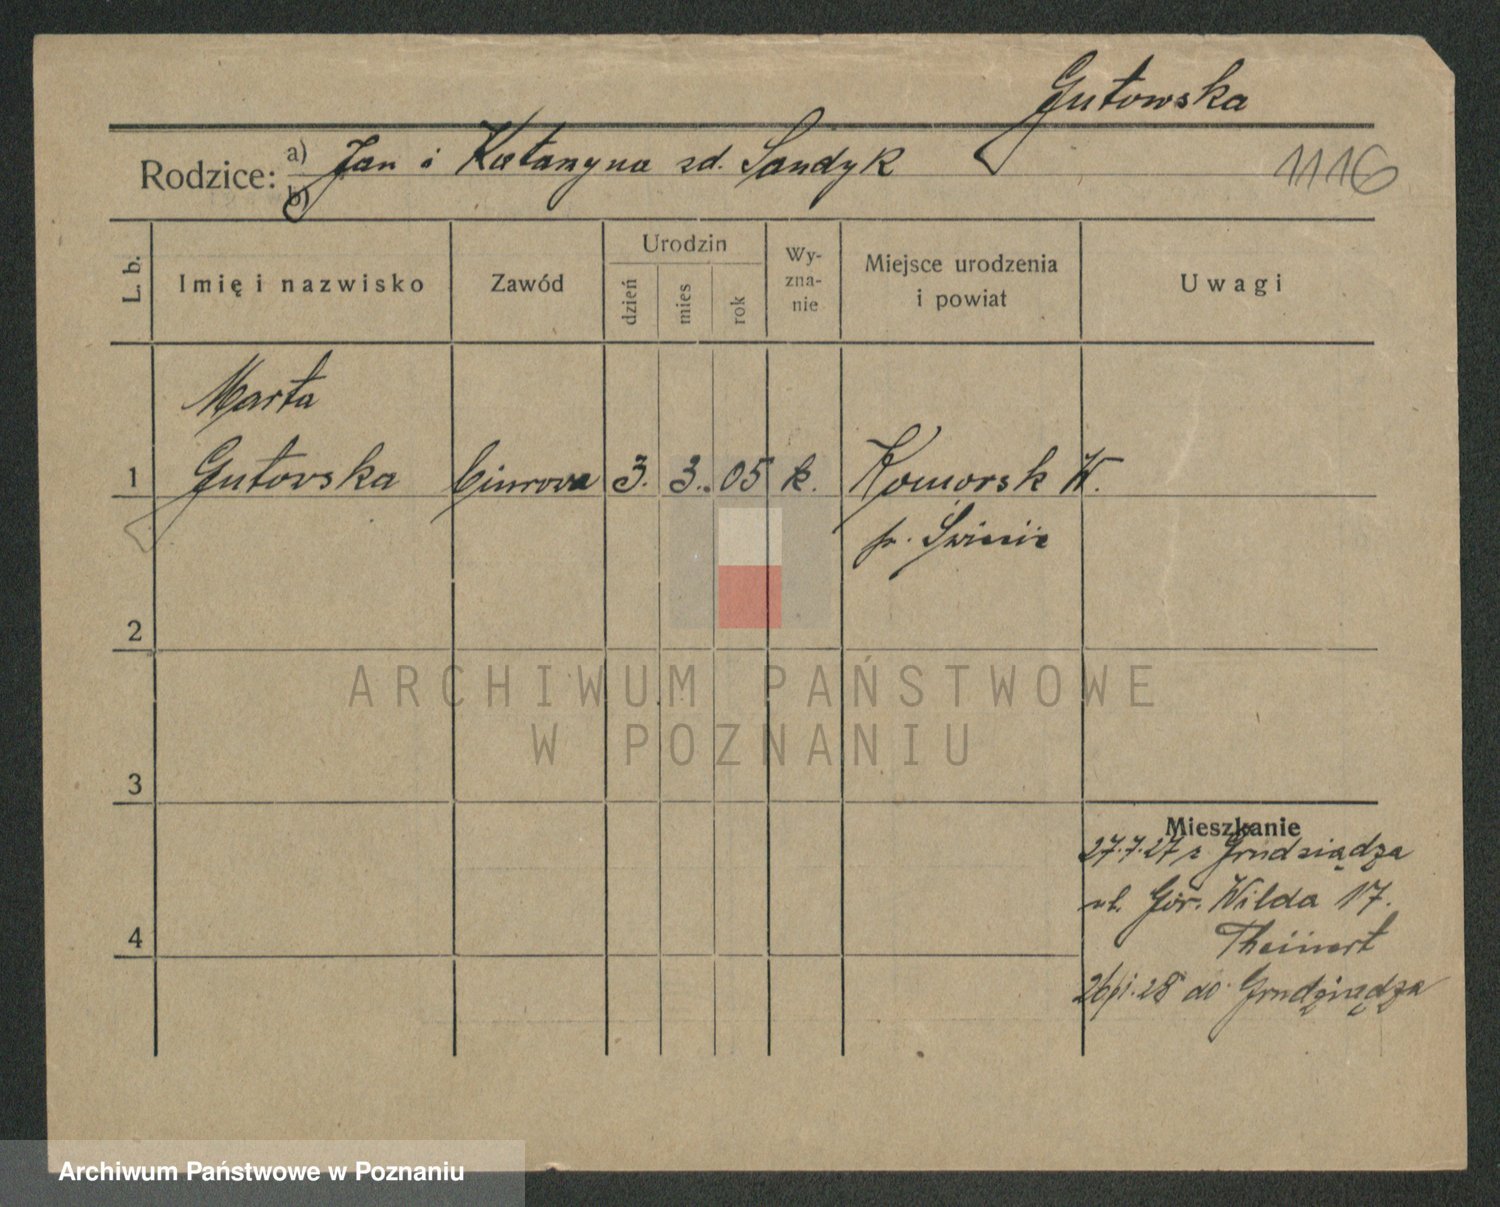 Gutowska
Rodzice: a) Jan i Katarzyna zd. Sandyk
b)
1116
L. b.
Imię i nazwisko
Zawód
Urodzin
dzień
mies
rok
Wy-
zna-
nie
Miejsce urodzenia
i powiat
Uwagi
Marta
1 Gutovska biurowa 3. 3. 05 k. Komorsk W.
p. Świecie
2
ARCHIWUM PAŃSTWOWE
W POZNANIU
3
Mieszkanie
27.7.27 z Grudziądza
ul. Gór. Wilda 17.
4
26/1.28 do Grudziądza
Archiwum Państwowe w Poznaniu